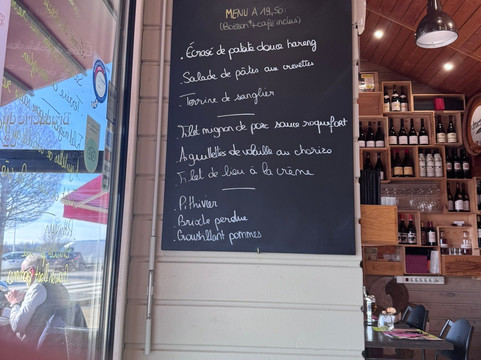 MENU A 19,50:
(Boisson + café inclus)
. Écrasé de patate douce hareng
. Salade de pâtes aux crevettes
. Terrine de sanglier
. Filet mignon de porc sauce roquefort
. Aiguillettes de volaille au chorizo
. Filet de lieu à la crème
. Pithivier
. Brioche perdue
. Croustillant pommes